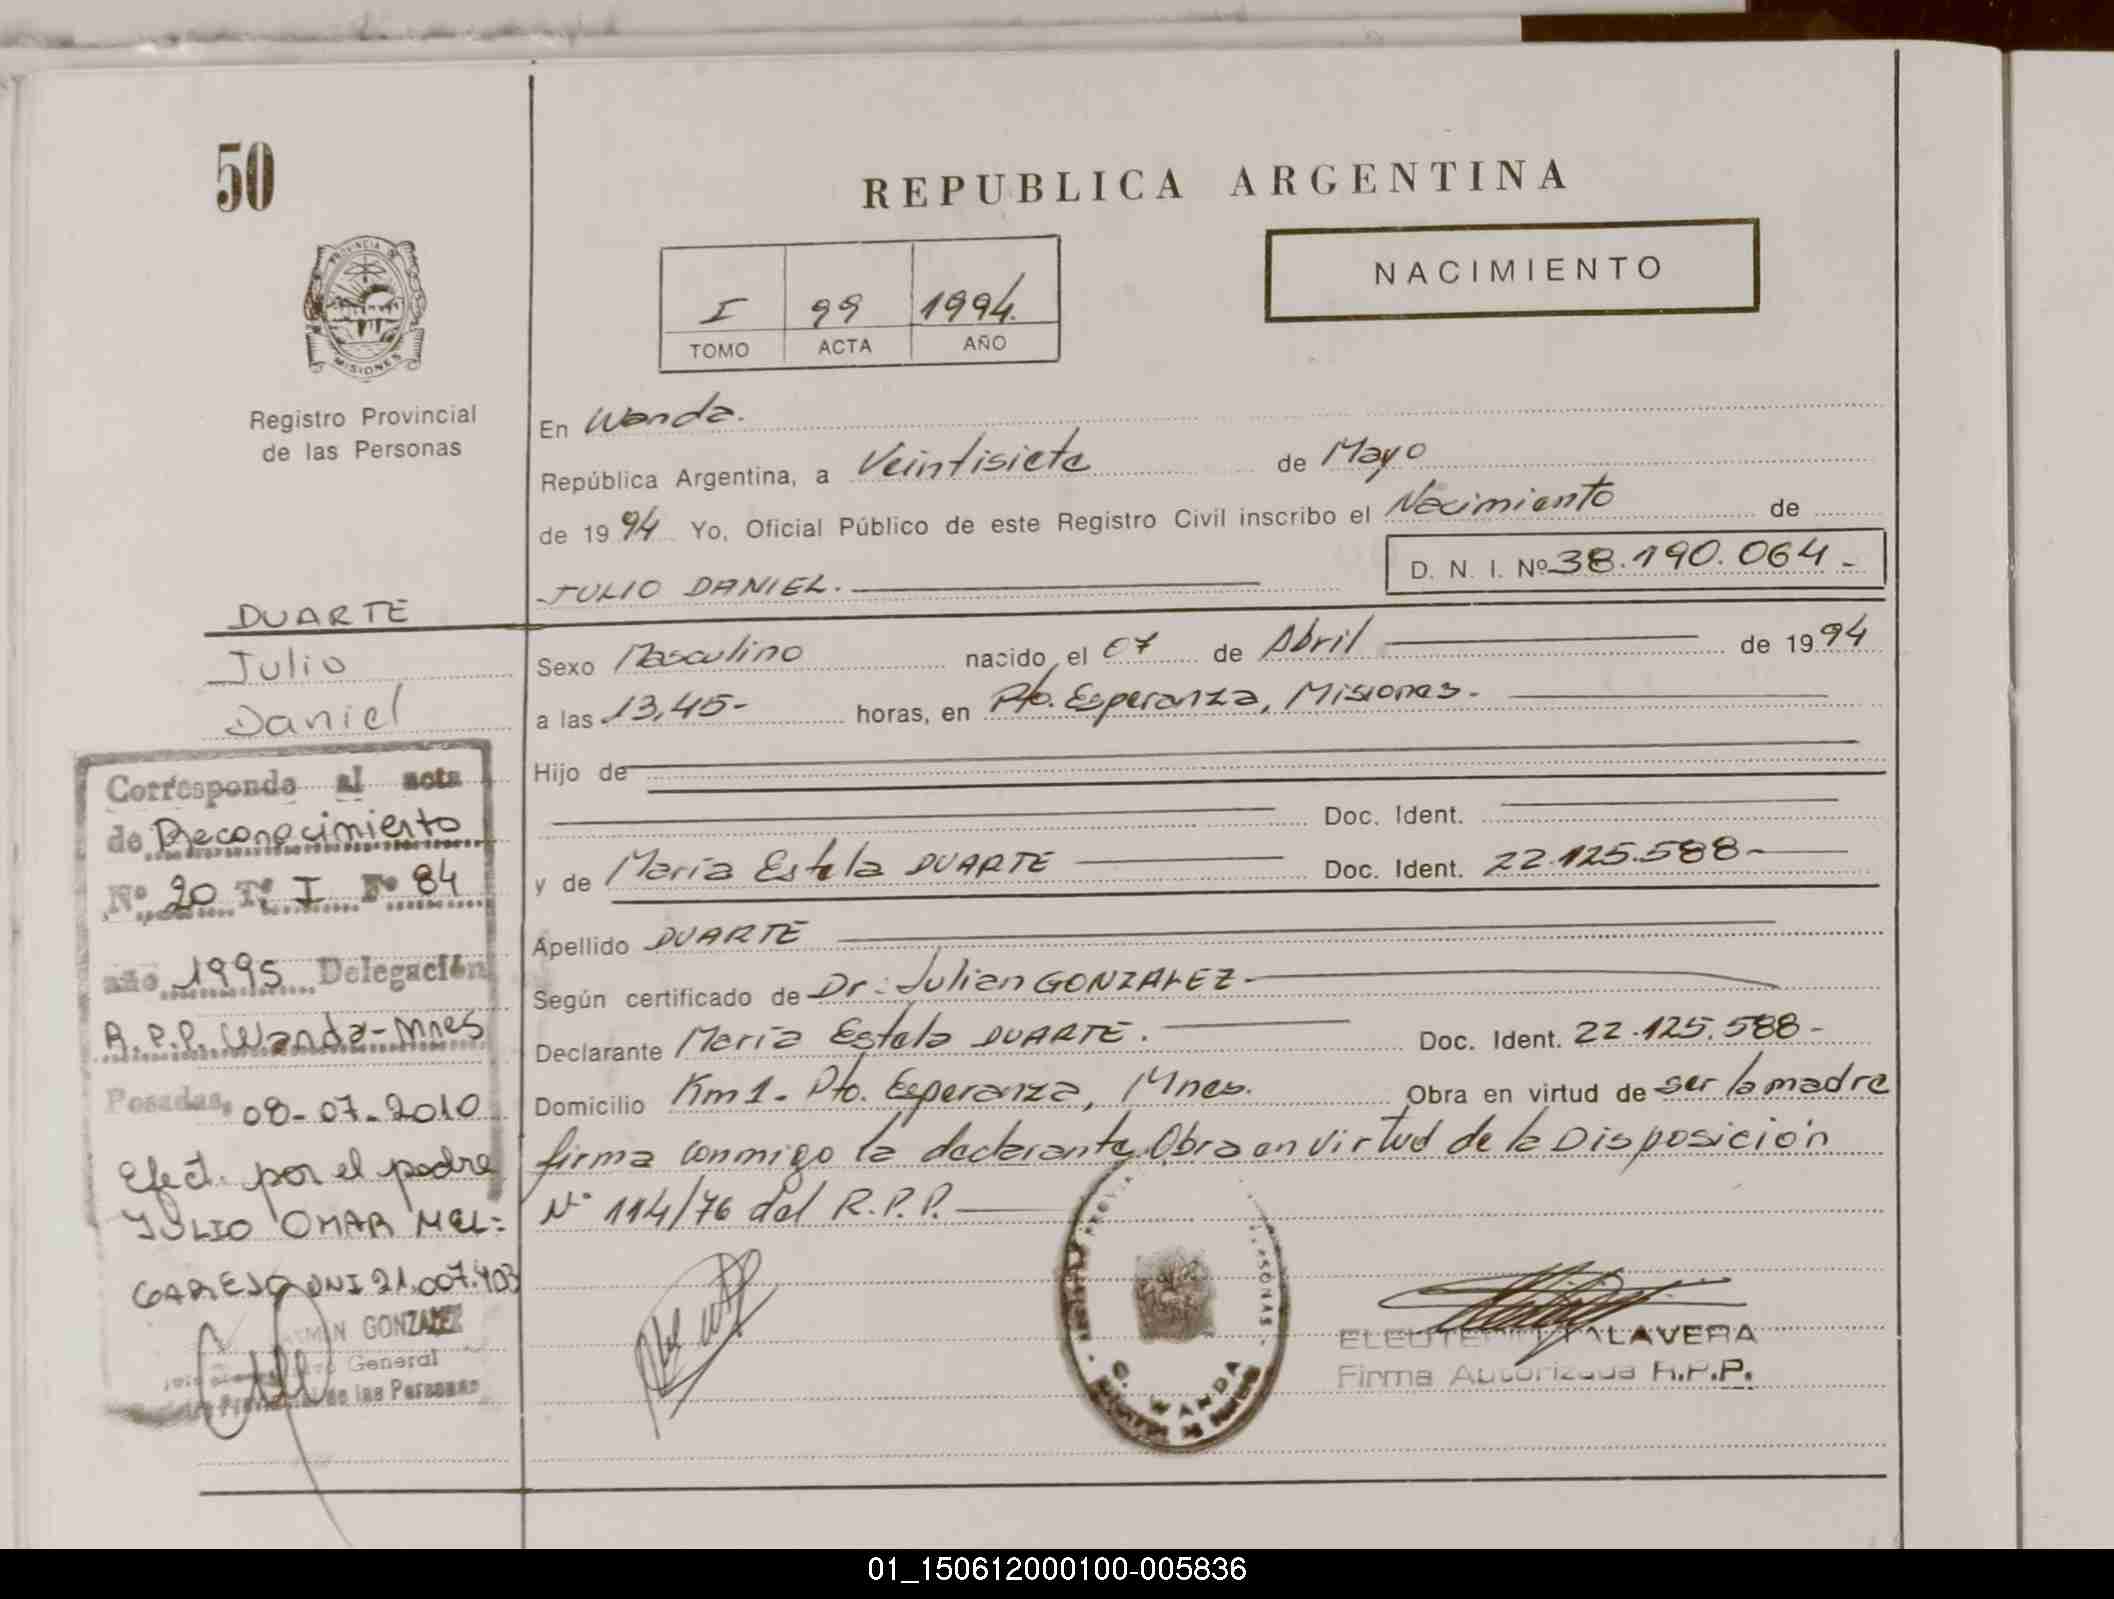 50
REPUBLICA ARGENTINA
NACIMIENTO
I 99 1994
TOMO ACTA AÑO
PROVINCIA DE
MISIONES
Registro Provincial
de las Personas
En Wanda.
República Argentina, a Veintisiete de Mayo
de 1994 Yo, Oficial Público de este Registro Civil inscribo el Nacimiento de
D. N. I. Nº 38.190.064-
JULIO DANIEL.
DUARTE
Julio
Daniel
Sexo Masculino nacido el 07 de Abril de 1994
a las 13,45- horas, en Pto. Esperanza, Misiones.-
Hijo de
Doc. Ident.
y de María Estela DUARTE Doc. Ident. 22.125.588-
Apellido DUARTE
Según certificado de Dr. Julian GONZALEZ-
Declarante María Estela DUARTE. Doc. Ident. 22.125.588-
Domicilio Km 1- Pto. Esperanza, Mnes. Obra en virtud de ser la madre
firma conmigo la declarante. Obra en virtud de la Disposición
Nº 114/76 del R.P.P.
Corresponde al acta
de Reconocimiento
Nº 20 Tº I Fº 84
año 1995 Delegación
R.P.P. Wanda-Mnes
Posadas, 08-07-2010
Efect. por el padre
JULIO OMAR MEL=
GAREJO DNI 21.007.403
GONZALEZ
General
de las Personas
WANDA
ELEUTERIO TALAVERA
Firma Autorizada R.P.P.
01_150612000100-005836